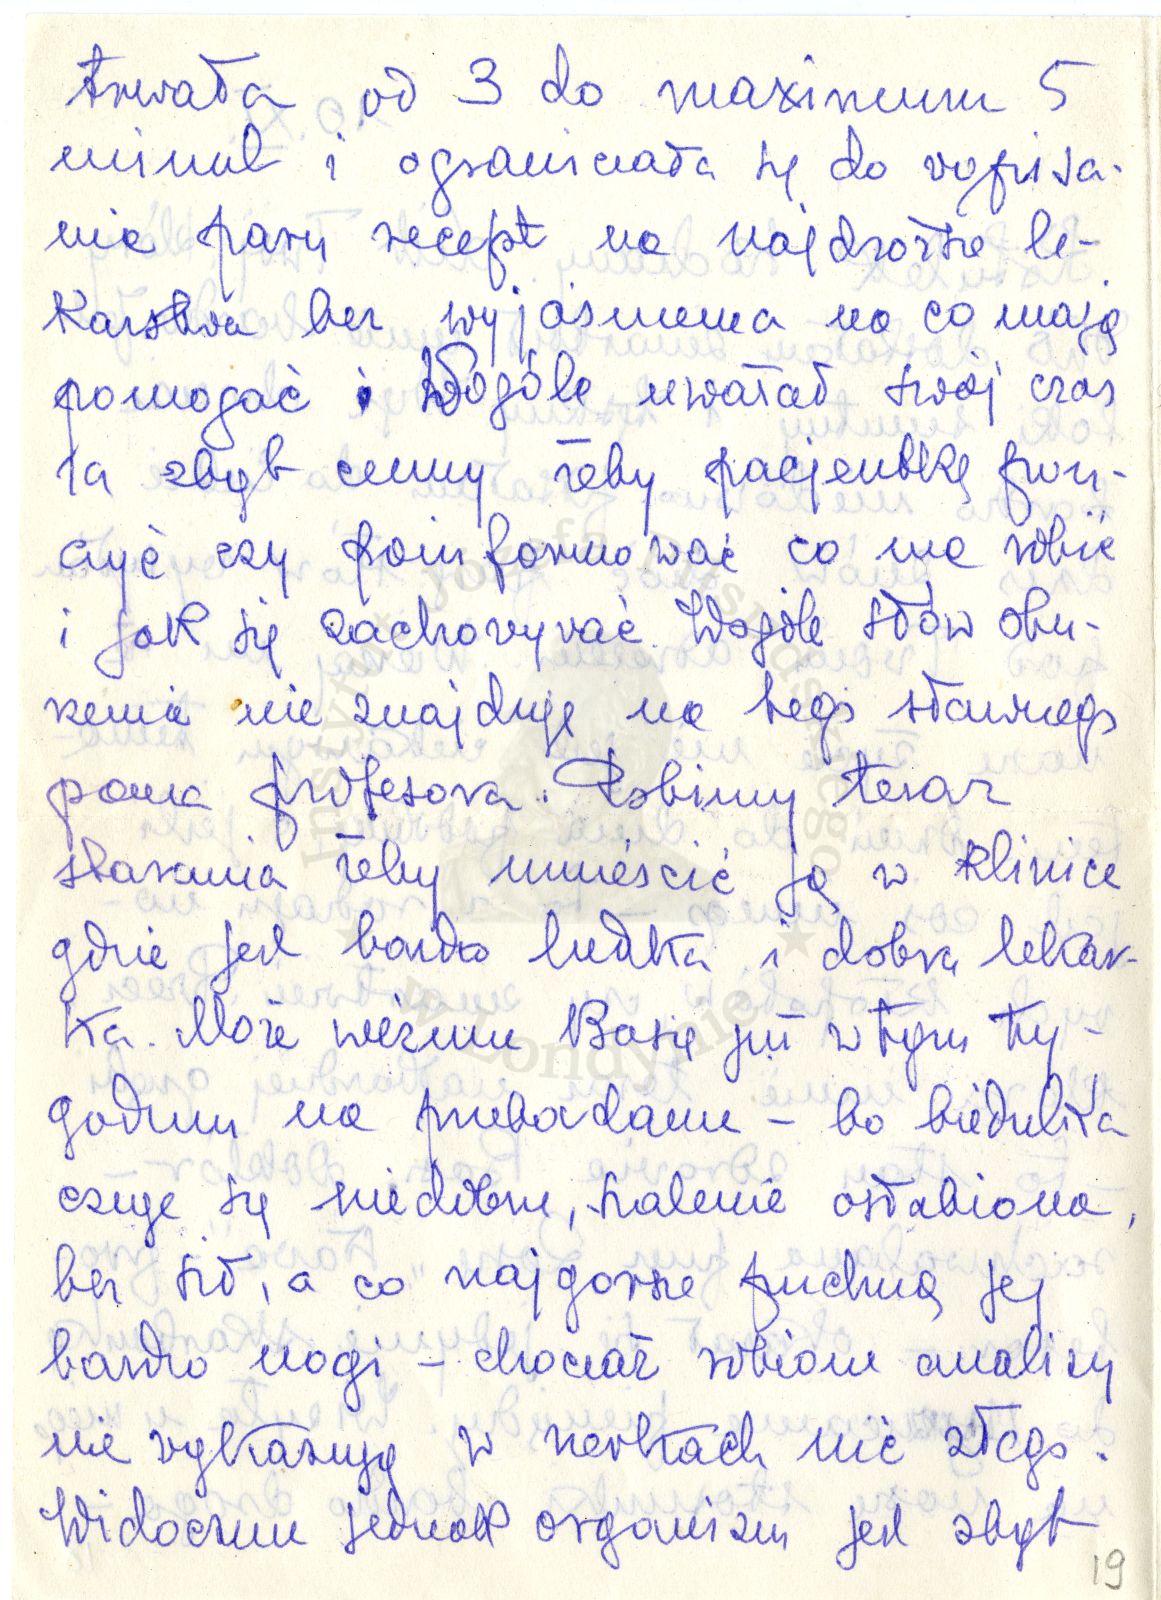 trwała od 3 do maximum 5
minut i ograniczała się do wypisa-
nia paru recept na najdroższe le-
karstwa bez wyjaśnienia na co mają
pomagać i wogóle uważał swój czas
za zbyt cenny żeby pacjentkę pou-
czyć czy poinformować co ma robić
i jak się zachowywać. Wogóle słów obu-
rzenia nie znajduję na tego sławnego
pana profesora. Robimy teraz
starania żeby umieścić ją w klinice
gdzie jest bardzo ludzka i dobra lekar-
ka. Może weźmie Basię już w tym ty-
godniu na przebadanie – bo biedulka
czuje się niedobrze, szalenie osłabiona,
bez sił, a co najgorsze puchną jej
bardzo nogi – chociaż robione analizy
nie wykazują w nerkach nic złego.
Widocznie jednak organizm jest zbyt
19
Instytut Józefa Piłsudskiego
w Londynie